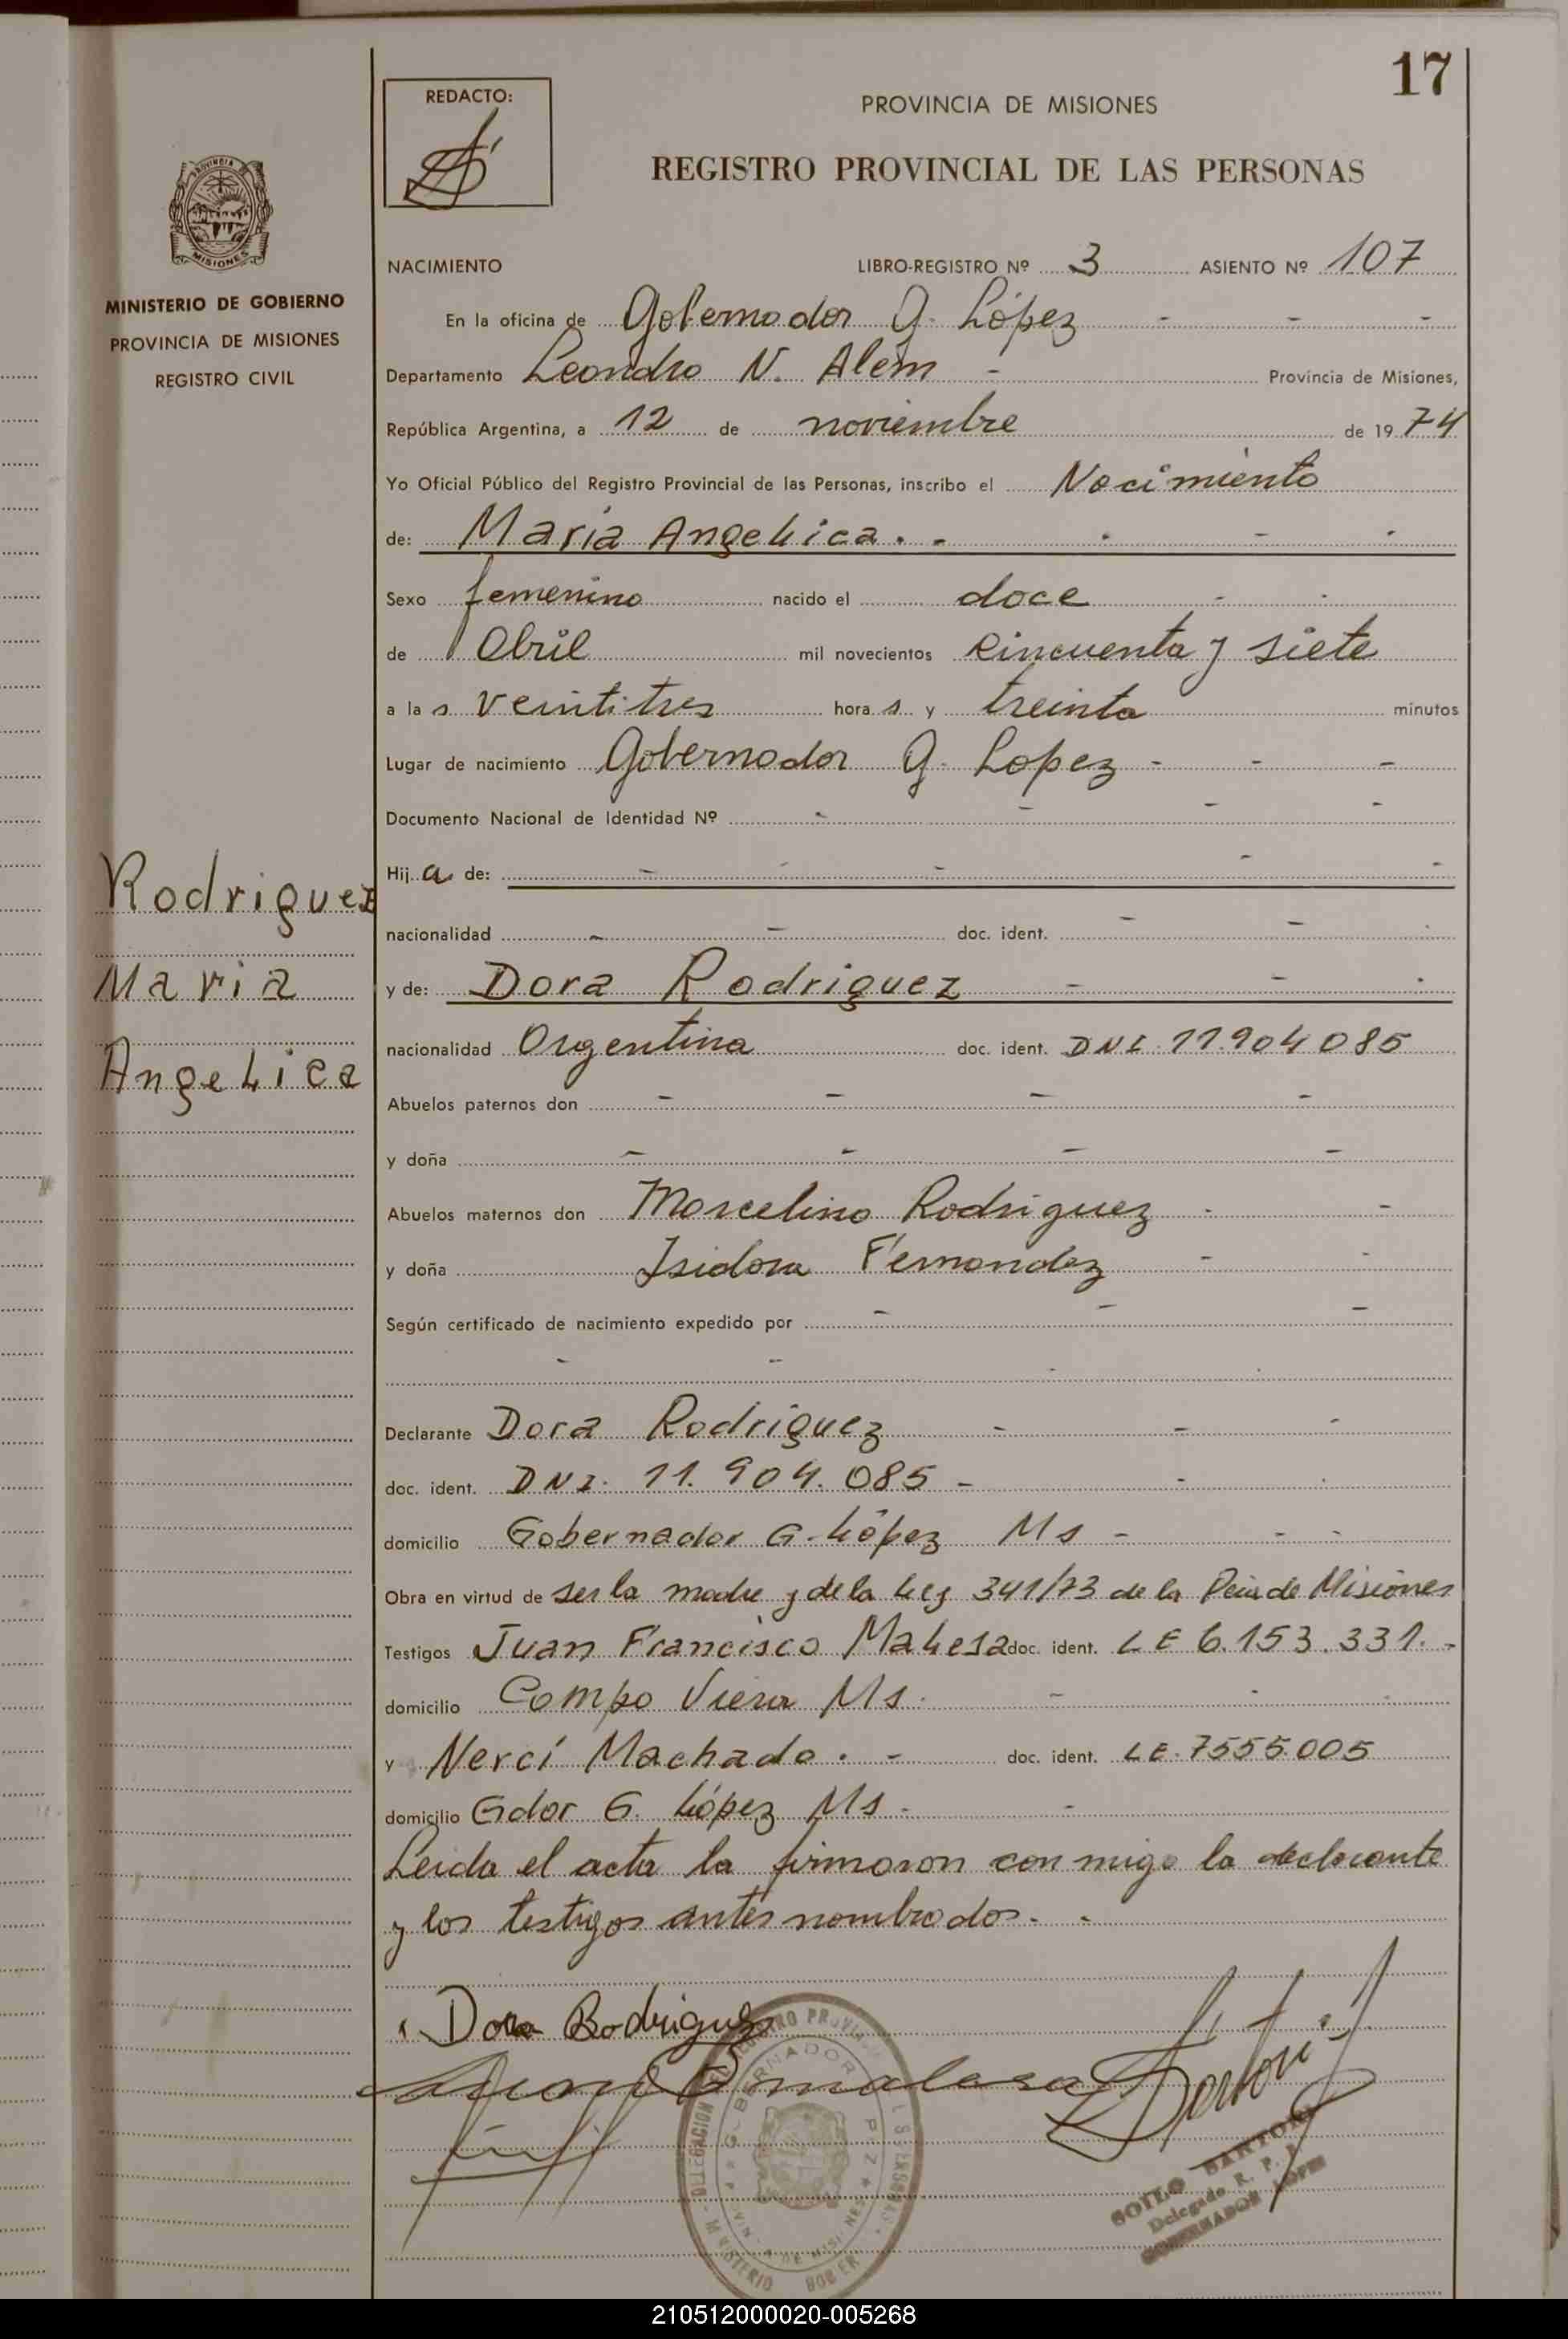 17
REDACTO:
PROVINCIA DE MISIONES
REGISTRO PROVINCIAL DE LAS PERSONAS
PROVINCIA
MISIONES
MINISTERIO DE GOBIERNO
PROVINCIA DE MISIONES
REGISTRO CIVIL
NACIMIENTO LIBRO-REGISTRO Nº 3 ASIENTO Nº 107
En la oficina de Gobernador G. López - - -
Departamento Leandro N. Alem - Provincia de Misiones,
República Argentina, a 12 de noviembre de 19 74
Yo Oficial Público del Registro Provincial de las Personas, inscribo el Nacimiento
de: María Angelica. - - - -
Sexo femenino nacido el doce - -
de Abril mil novecientos cincuenta y siete
a la s veintitres hora s y treinta minutos
Lugar de nacimiento Gobernador G. Lopez - - -
Documento Nacional de Identidad Nº - - - -
Hij a de: - - - - -
nacionalidad - - doc. ident. - - -
y de: Dora Rodriguez - - -
nacionalidad Argentina doc. ident. DNI. 11.904.085
Abuelos paternos don - - - -
y doña - - - -
Abuelos maternos don Marcelino Rodriguez - -
y doña Isidora Fernandez - -
Según certificado de nacimiento expedido por - - -
- - - -
Declarante Dora Rodriguez - - -
doc. ident. DNI. 11.904.085 - - -
domicilio Gobernador G. López Ms - - -
Obra en virtud de ser la madre y de la Ley 341/73 de la Pcia de Misiones
Testigos Juan Francisco Malesa doc. ident. LE 6.153.331. -
domicilio Campo Viera Ms. - - -
y Nercí Machado. - doc. ident. LE. 7555.005
domicilio Gdor G. López Ms - -
Leida el acta la firmaron con migo la declarante
y los testigos antes nombrados. -
Rodriguez
Maria
Angelica
Dora Rodriguez
Juan F malesa
SOILO SARTORI
Delegado R. P. P.
GOBERNADOR LOPEZ
210512000020-005268